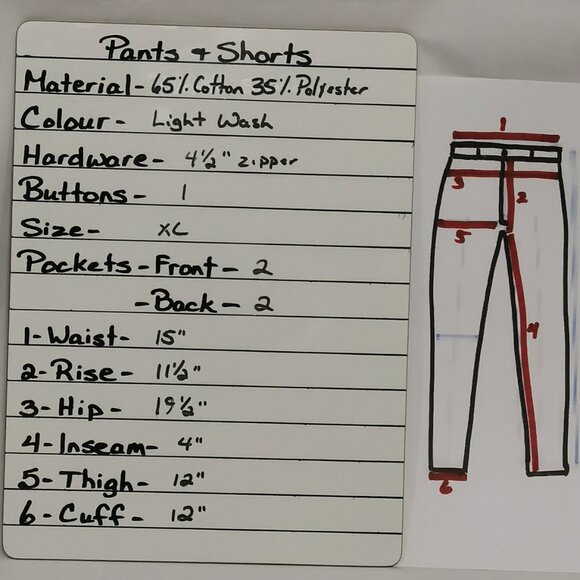 Pants & Shorts
Material - 65% Cotton 35% Polyester
Colour - Light Wash
Hardware - 4½" zipper
Buttons - 1
Size - XL
Pockets - Front - 2
- Back - 2
1 - Waist - 15"
2 - Rise - 11½"
3 - Hip - 19½"
4 - Inseam - 4"
5 - Thigh - 12"
6 - Cuff - 12"
1
3
2
5
4
6